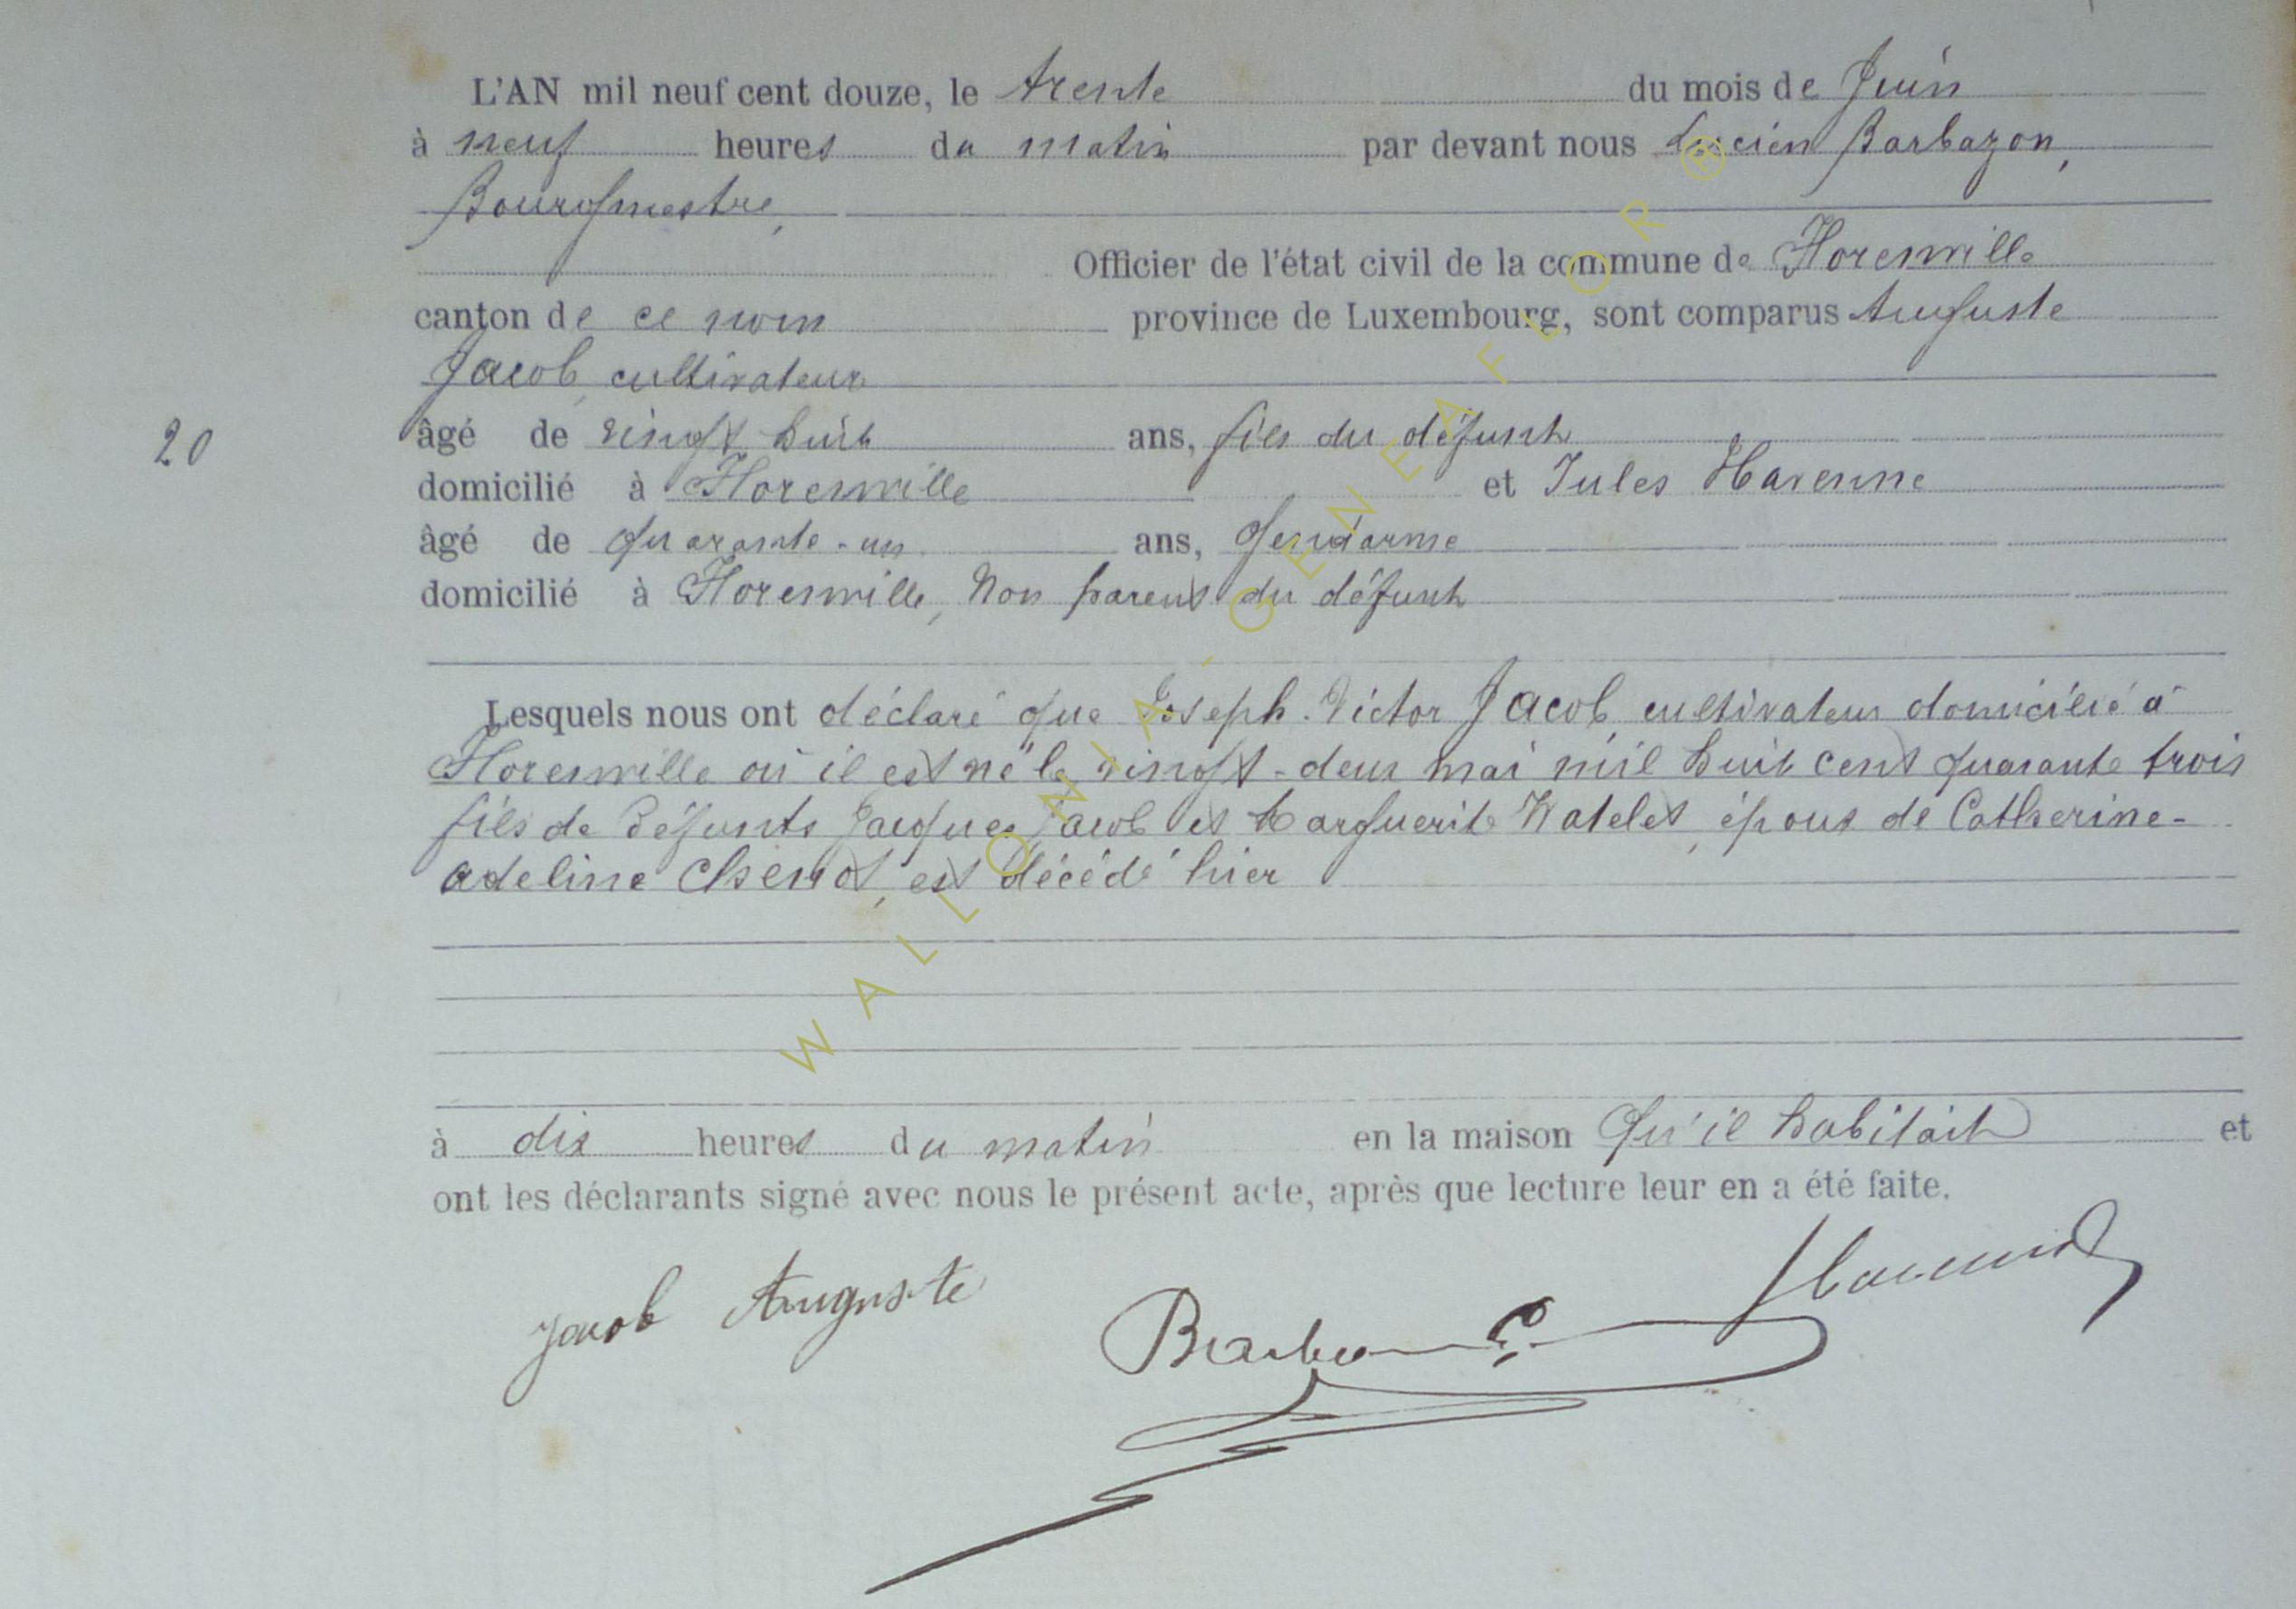 L'AN mil neuf cent douze, le trente du mois de Juin
à neuf heures du matin par devant nous Lucien Barbazon,
Bourgmestre,
Officier de l'état civil de la commune de Florenville
canton de ce nom province de Luxembourg, sont comparus Auguste
Jacob, cultivateur
20
âgé de vingt huit ans, fils du défunt
domicilié à Florenville et Jules Havenne
âgé de quarante-un ans, gendarme
domicilié à Florenville, Non parent du défunt
Lesquels nous ont déclaré que Joseph-Victor Jacob, cultivateur domicilié à
Florenville où il est né le vingt-deux mai mil huit cent quarante trois
fils de défunts Jacques Jacob et Marguerite Watelet, époux de Catherine-
Adeline Chenot, est décédé hier
à dix heures du matin en la maison qu'il habitait et
ont les déclarants signé avec nous le présent acte, après que lecture leur en a été faite.
Jacob Auguste
WALLONIA - GENEAFLOR ®